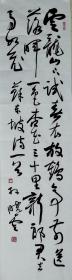 雲龍山下試春衣放鶴亭前送
落暉一色杏花三十里新郎君去
馬如飛 蘇東坡詩一首 孫曉雲